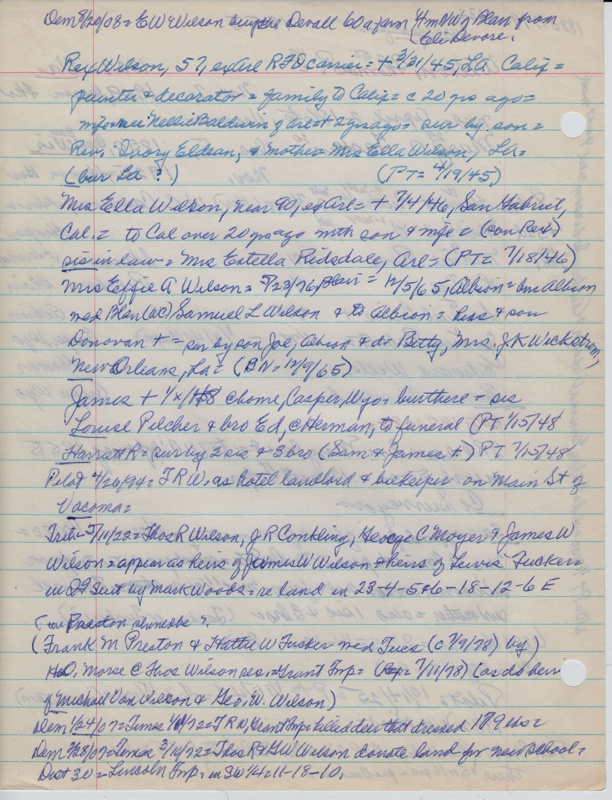 Dem 8/20/08 = E W Wilson buys the Devall 60 a farm 4 m NW of Blair from
Eli Devore.
Rex Wilson, 57, ex Arl RFD carrier = + 3/31/45, LA Calif =
painter & decorator = family to Calif = c 20 yrs ago =
mfe nee Nellie Baldwin of Arl = + 2 yrs ago = sur by son =
Rev. Ivory Eldean, & mother = Mrs Ella Wilson, LA =
(bur LA ?) (PT = 4/19/45)
Mrs Ella Wilson, near 90, ex Arl = + 7/4/46, San Gabriel,
Cal = to Cal over 20 yrs ago with son & mfe = (son Rex)
sis in law = Mrs Estella Ridsdale, Arl = (PT = 7/18/46)
Mrs Effie A Wilson = 7/23/76, Blair = 12/5/65, Albion = bur Albion
med Blair (ac) Samuel L Wilson & to Albion = hus & son
Donovan + = sur by son Joe, Albion & dt Betty, Mrs. J K Wickstrom,
New Orleans, La = (BN = 12/9/65)
James + 1/x/48 @ home, Casper, Wyo = bur there = sis
Louise Pilcher & bro Ed, C Herman, to funeral (PT 1/15/48
Harriett R = sur by 2 sis & 3 bro (Sam & James +) PT 1/15/48
Pilot 4/26/94 = T R W = as hotel landlord & barkeeper on Main St of
Vacoma =
Trib = 5/11/22 = Thos R Wilson, J R Conkling, George C Moyer & James W
Wilson = appear as heirs of James W Wilson & heirs of Lewis Tucker
in QT Suit by Mark Woods = re land in 23-4-5&6-18-12-6 E
Two Preston
(Frank M Preston & Hattie W Tucker med Tues (c 7/9/78) by)
H.O. Morse @ Thos Wilson res. = Grant Twp = 7/11/78) (as do heirs
of Michael Van Wilson & Geo. W. Wilson)
Dem 1/24/07 = Times 1/4/72 = T R W, Grant Twp killed deer that dressed 179 lbs =
Dem 3/28/07 = Times 3/14/72 = Thos R & G W Wilson donate land for new school =
Dist 30 = Lincoln Twp. in SW 1/4 = 11-18-10.